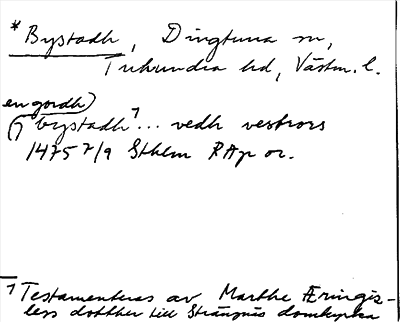 * Bystadh, Dingtuna sn,
Tuhundra hd, Västm. l.
en gordh)
(j bystadh 1... vedh vestrors
1475 7/9 Sthlm RAp or.
1 Testamenteras av Marthe Æringis-
less dotther till Strängnäs domkyrka